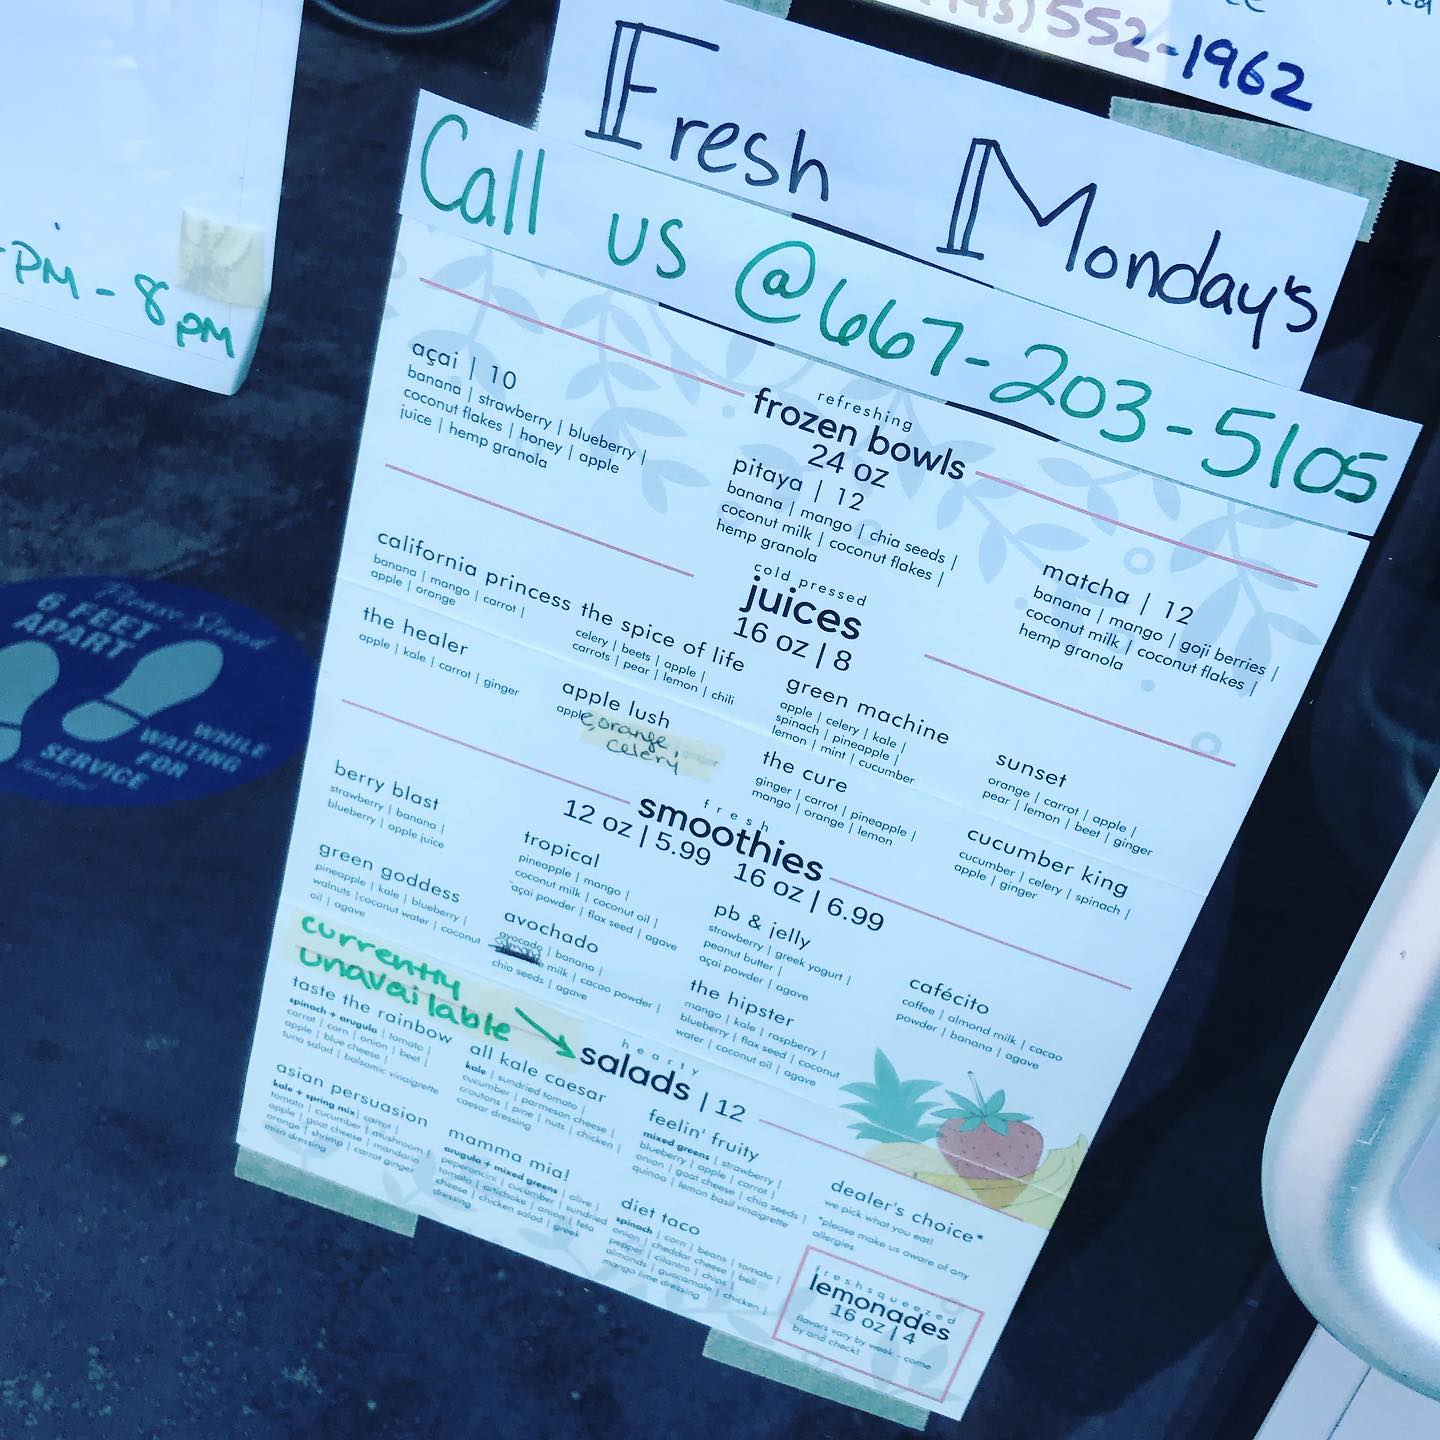 552-1962
Fresh Monday's
Call us @ 667-203-5105
PM - 8PM
Please Stand
6 FEET
APART
WHILE
WAITING
FOR
SERVICE
refreshing
frozen bowls
24 oz
açai | 10
banana | strawberry | blueberry |
coconut flakes | honey | apple
juice | hemp granola
pitaya | 12
banana | mango | chia seeds |
coconut milk | coconut flakes |
hemp granola
matcha | 12
banana | mango | goji berries |
coconut milk | coconut flakes |
hemp granola
cold pressed
juices
16 oz | 8
california princess
banana | mango | carrot |
apple | orange
the healer
apple | kale | carrot | ginger
the spice of life
celery | beets | apple |
carrots | pear | lemon | chili
apple lush
apple, orange,
celery
green machine
apple | celery | kale |
spinach | pineapple |
lemon | mint | cucumber
the cure
ginger | carrot | pineapple |
mango | orange | lemon
sunset
orange | carrot | apple |
pear | lemon | beet | ginger
cucumber king
cucumber | celery | spinach |
apple | ginger
fresh
smoothies
12 oz | 5.99 16 oz | 6.99
berry blast
strawberry | banana |
blueberry | apple juice
green goddess
pineapple | kale | blueberry |
walnuts | coconut water | coconut
oil | agave
tropical
pineapple | mango |
coconut milk | coconut oil |
açai powder | flax seed | agave
avochado
avocado | banana |
milk | cacao powder |
chia seeds | agave
pb & jelly
strawberry | greek yogurt |
peanut butter |
açai powder | agave
the hipster
mango | kale | raspberry |
blueberry | flax seed | coconut
water | coconut oil | agave
cafécito
coffee | almond milk | cacao
powder | banana | agave
currently
unavailable
hearty
salads | 12
taste the rainbow
spinach + arugula | tomato |
carrot | corn | onion | beet |
apple | blue cheese |
tuna salad | balsamic vinaigrette
asian persuasion
kale + spring mix | carrot |
tomato | cucumber | mushroom |
apple | goat cheese | mandarin
orange | shrimp | carrot ginger
miso dressing
all kale caesar
kale | sundried tomato |
cucumber | parmesan cheese |
croutons | pine | nuts | chicken |
caesar dressing
mamma mia!
arugula + mixed greens | olive |
peperoncini | cucumber | sundried
tomato | artichoke | onion | feta
cheese | chicken salad | greek
dressing
feelin' fruity
mixed greens | strawberry |
blueberry | apple | carrot |
onion | goat cheese | chia seeds |
quinoa | lemon basil vinaigrette
diet taco
spinach | corn | beans | tomato |
onion | cheddar cheese | bell
pepper | cilantro | chips |
almonds | guacamole | chicken |
mango lime dressing
dealer's choice*
we pick what you eat!
*please make us aware of any
allergies
freshsqueezed
lemonades
16 oz | 4
flavors vary by week - come
by and check!